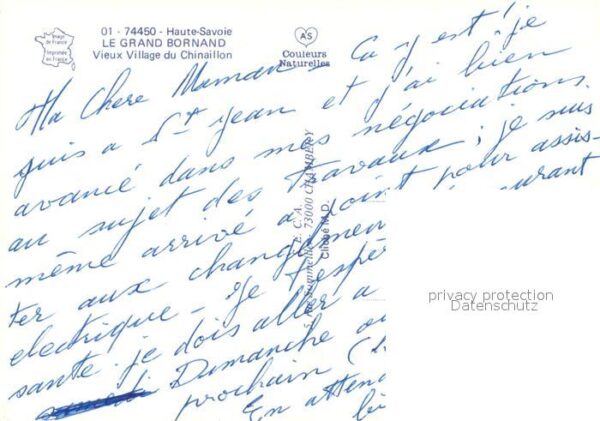 Image de France
Imprimée en France
01 - 74450 - Haute-Savoie
LE GRAND BORNAND
Vieux Village du Chinaillon
AS
Couleurs
Naturelles
Ma Chere Maman - Ca y est ! je
suis a St Jean et j'ai bien
avancé dans mes négociations
au sujet des travaux ; je suis
même arrivé a point pour assis-
ter aux changemen courant
electrique - Je t'espèr
santé. je dois aller a
Dimanche ou
prochain
En attend
bi
E. C. A.
73000 CHAMBERY
Cliché M.D.
privacy protection
Datenschutz